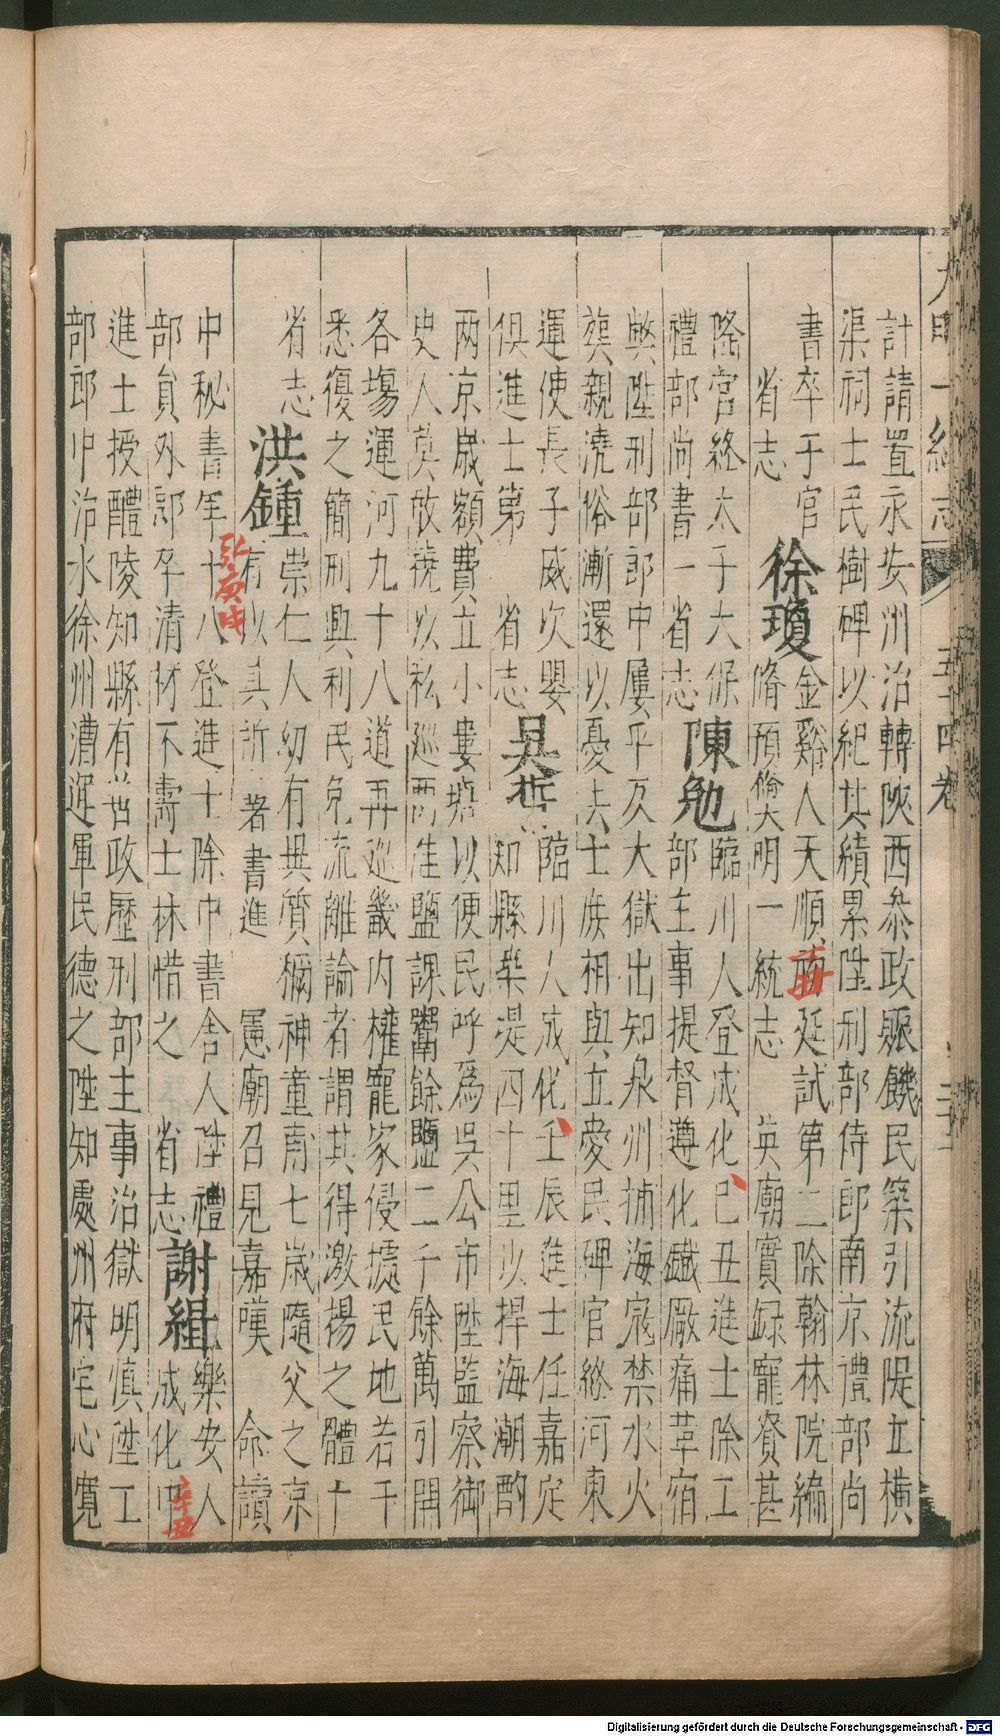 大明一統志 五十四卷
計請置永安州治轉陝西叅政賑饑民築引流隄立横
渠祠士民樹碑以紀其績累陞刑部侍郎南京禮部尚
書卒于官徐瓊金谿人天順延試第二除翰林院編
省志 脩預脩大明一統志 英廟實録寵賚甚
隆官終太子太保陳勉臨川人登成化己丑進士除工
禮部尚書一省志 部主事提督遵化鐵厰痛革宿
弊陞刑部郎中屢平反大獄出知泉州捕海寇禁水火
葬親澆俗漸還以憂去士族相與立愛民碑官終河東
運使長子威次嬰 臨川人成化壬辰進士任嘉定
俱進士第 省志吳哲 知縣築堤四十里以捍海潮酌
两京歳額費立小 塘以便民呼為吳公市陞監察御
史人莫敢撓以私廵两淮鹽課鬻餘鹽二千餘萬引開
各塲運河九十八道再廵畿内權寵家侵㨿民地若干
悉復之簡刑興利民免流離論者謂其得激揚之體十
省志 洪鍾崇仁人幼有異質稱神童甫七歳隨父之京
有以 著書進 憲廟召見嘉嘆 命讀
中秘書年十八登進士除中書舍人陞禮 樂安人
弘庚戌
部員外郎卒清材不壽士林惜之 省志謝緝成化中
辛丑
進士授醴陵知縣有善政歷刑部主事治獄明慎陞工
部郎中治水徐州漕運軍民德之陞知處州府宅心寛
Digitalisierung gefördert durch die Deutsche Forschungsgemeinschaft - DFG